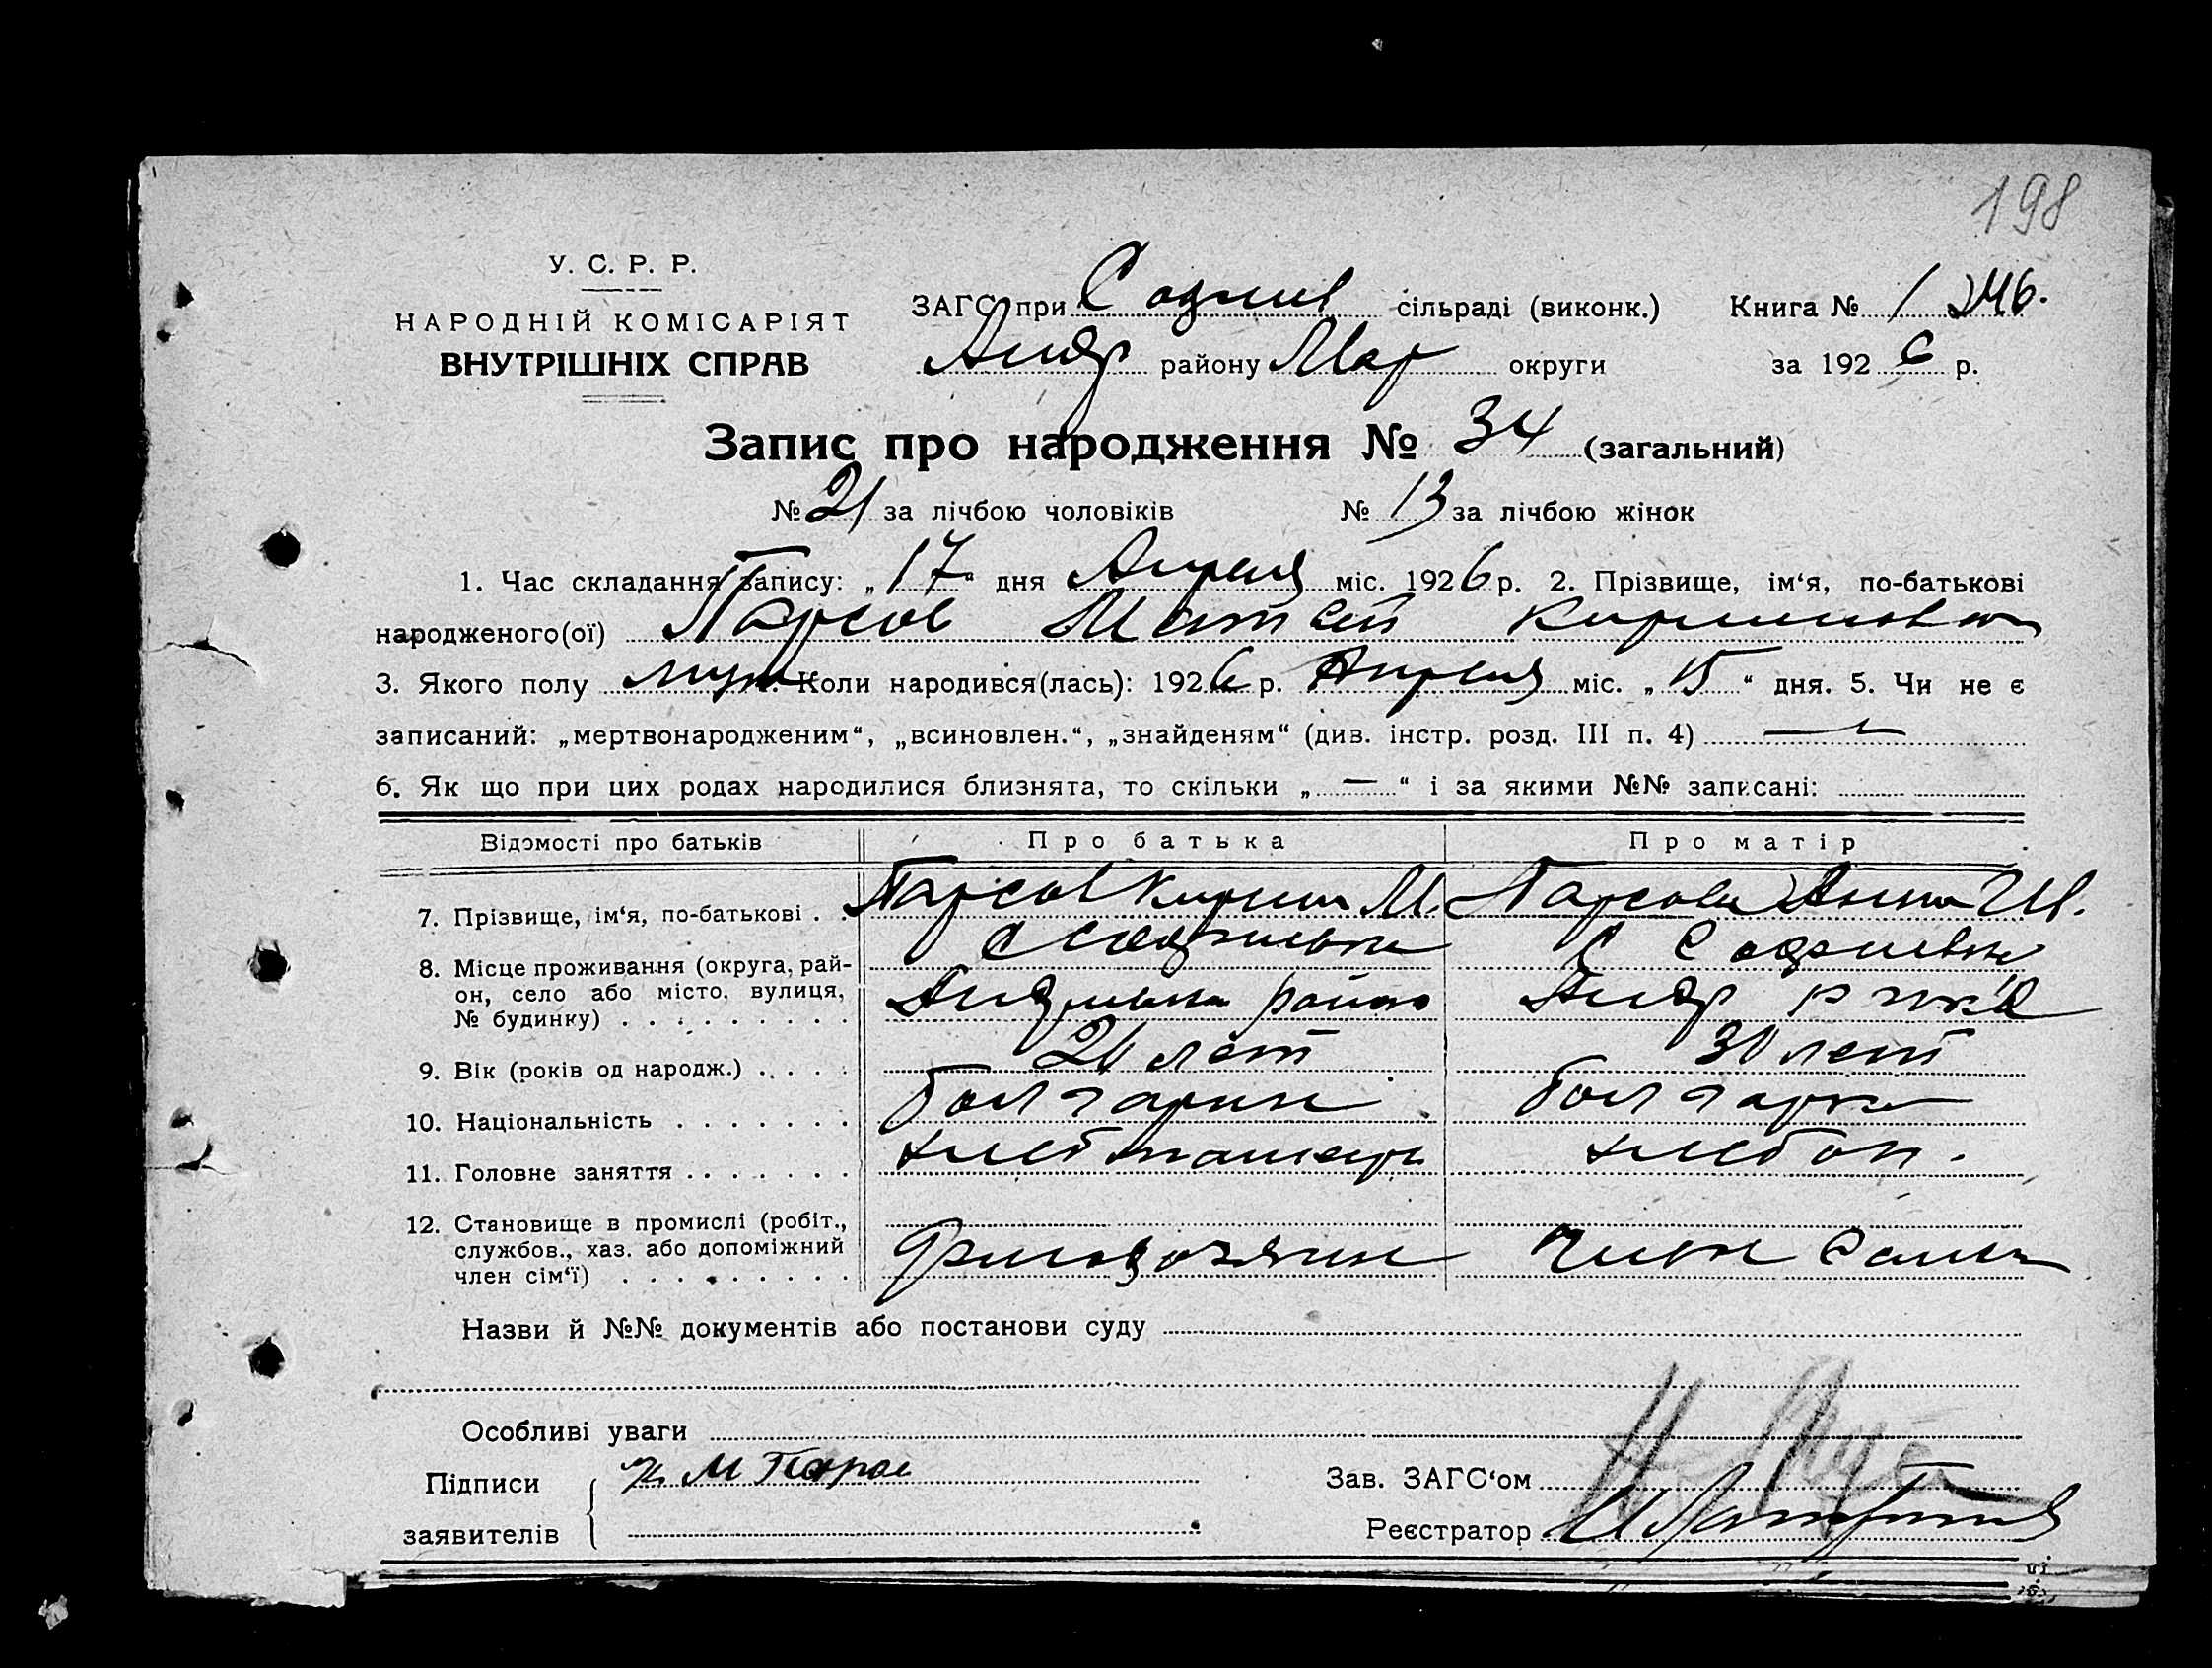 198
У. С. Р. Р.
НАРОДНІЙ КОМІСАРІЯТ
ВНУТРІШНІХ СПРАВ
ЗАГС при сільраді (виконк.) Книга № 1 246.
Андр району Мар округи за 1926 р.
Запис про народження № 34 (загальний)
№ 21 за лічбою чоловіків № 13 за лічбою жінок
1. Час складання запису: „17“ дня Апреля міс. 1926 р. 2. Прізвище, ім‘я, по-батькові
народженого(ої) Парсов Матвей Кирилович
3. Якого полу муж. Коли народився(лась): 1926 р. Апреля міс. „15“ дня. 5. Чи не є
записаний: „мертвонародженим“, „всиновлен.“, „знайденям“ (див. інстр. розд. III п. 4) —
6. Як що при цих родах народилися близнята, то скільки „—“ і за якими №№ записані:
Відомості про батьків Про батька Про матір
7. Прізвище, ім‘я, по-батькові . . Парсов Кирил М. Парсова Анна
8. Місце проживання (округа, рай-
он, село або місто, вулиця,
№ будинку) . . . . . . . . . район Андр
9. Вік (років од народж.) . . . . лет лет
10. Національність . . . . . . . болгарин болгарка
11. Головне заняття . . . . . . . хлебопашец хлебоп.
12. Становище в промислі (робіт.,
службов., хаз. або допоміжний
член сім‘ї) . . . . . . . . . член
Назви й №№ документів або постанови суду
Особливі уваги
Підписи М Парсов Зав. ЗАГС‘ом
заявителів Реєстратор